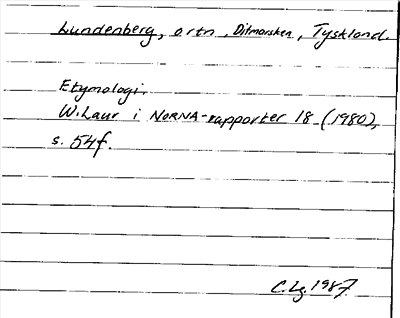 Lundenberg, ortn, Ditmarsken, Tyskland.
Etymologi.
W. Laur i NORNA-rapporter 18 (1980),
s. 54f.
C.Lg. 1987.